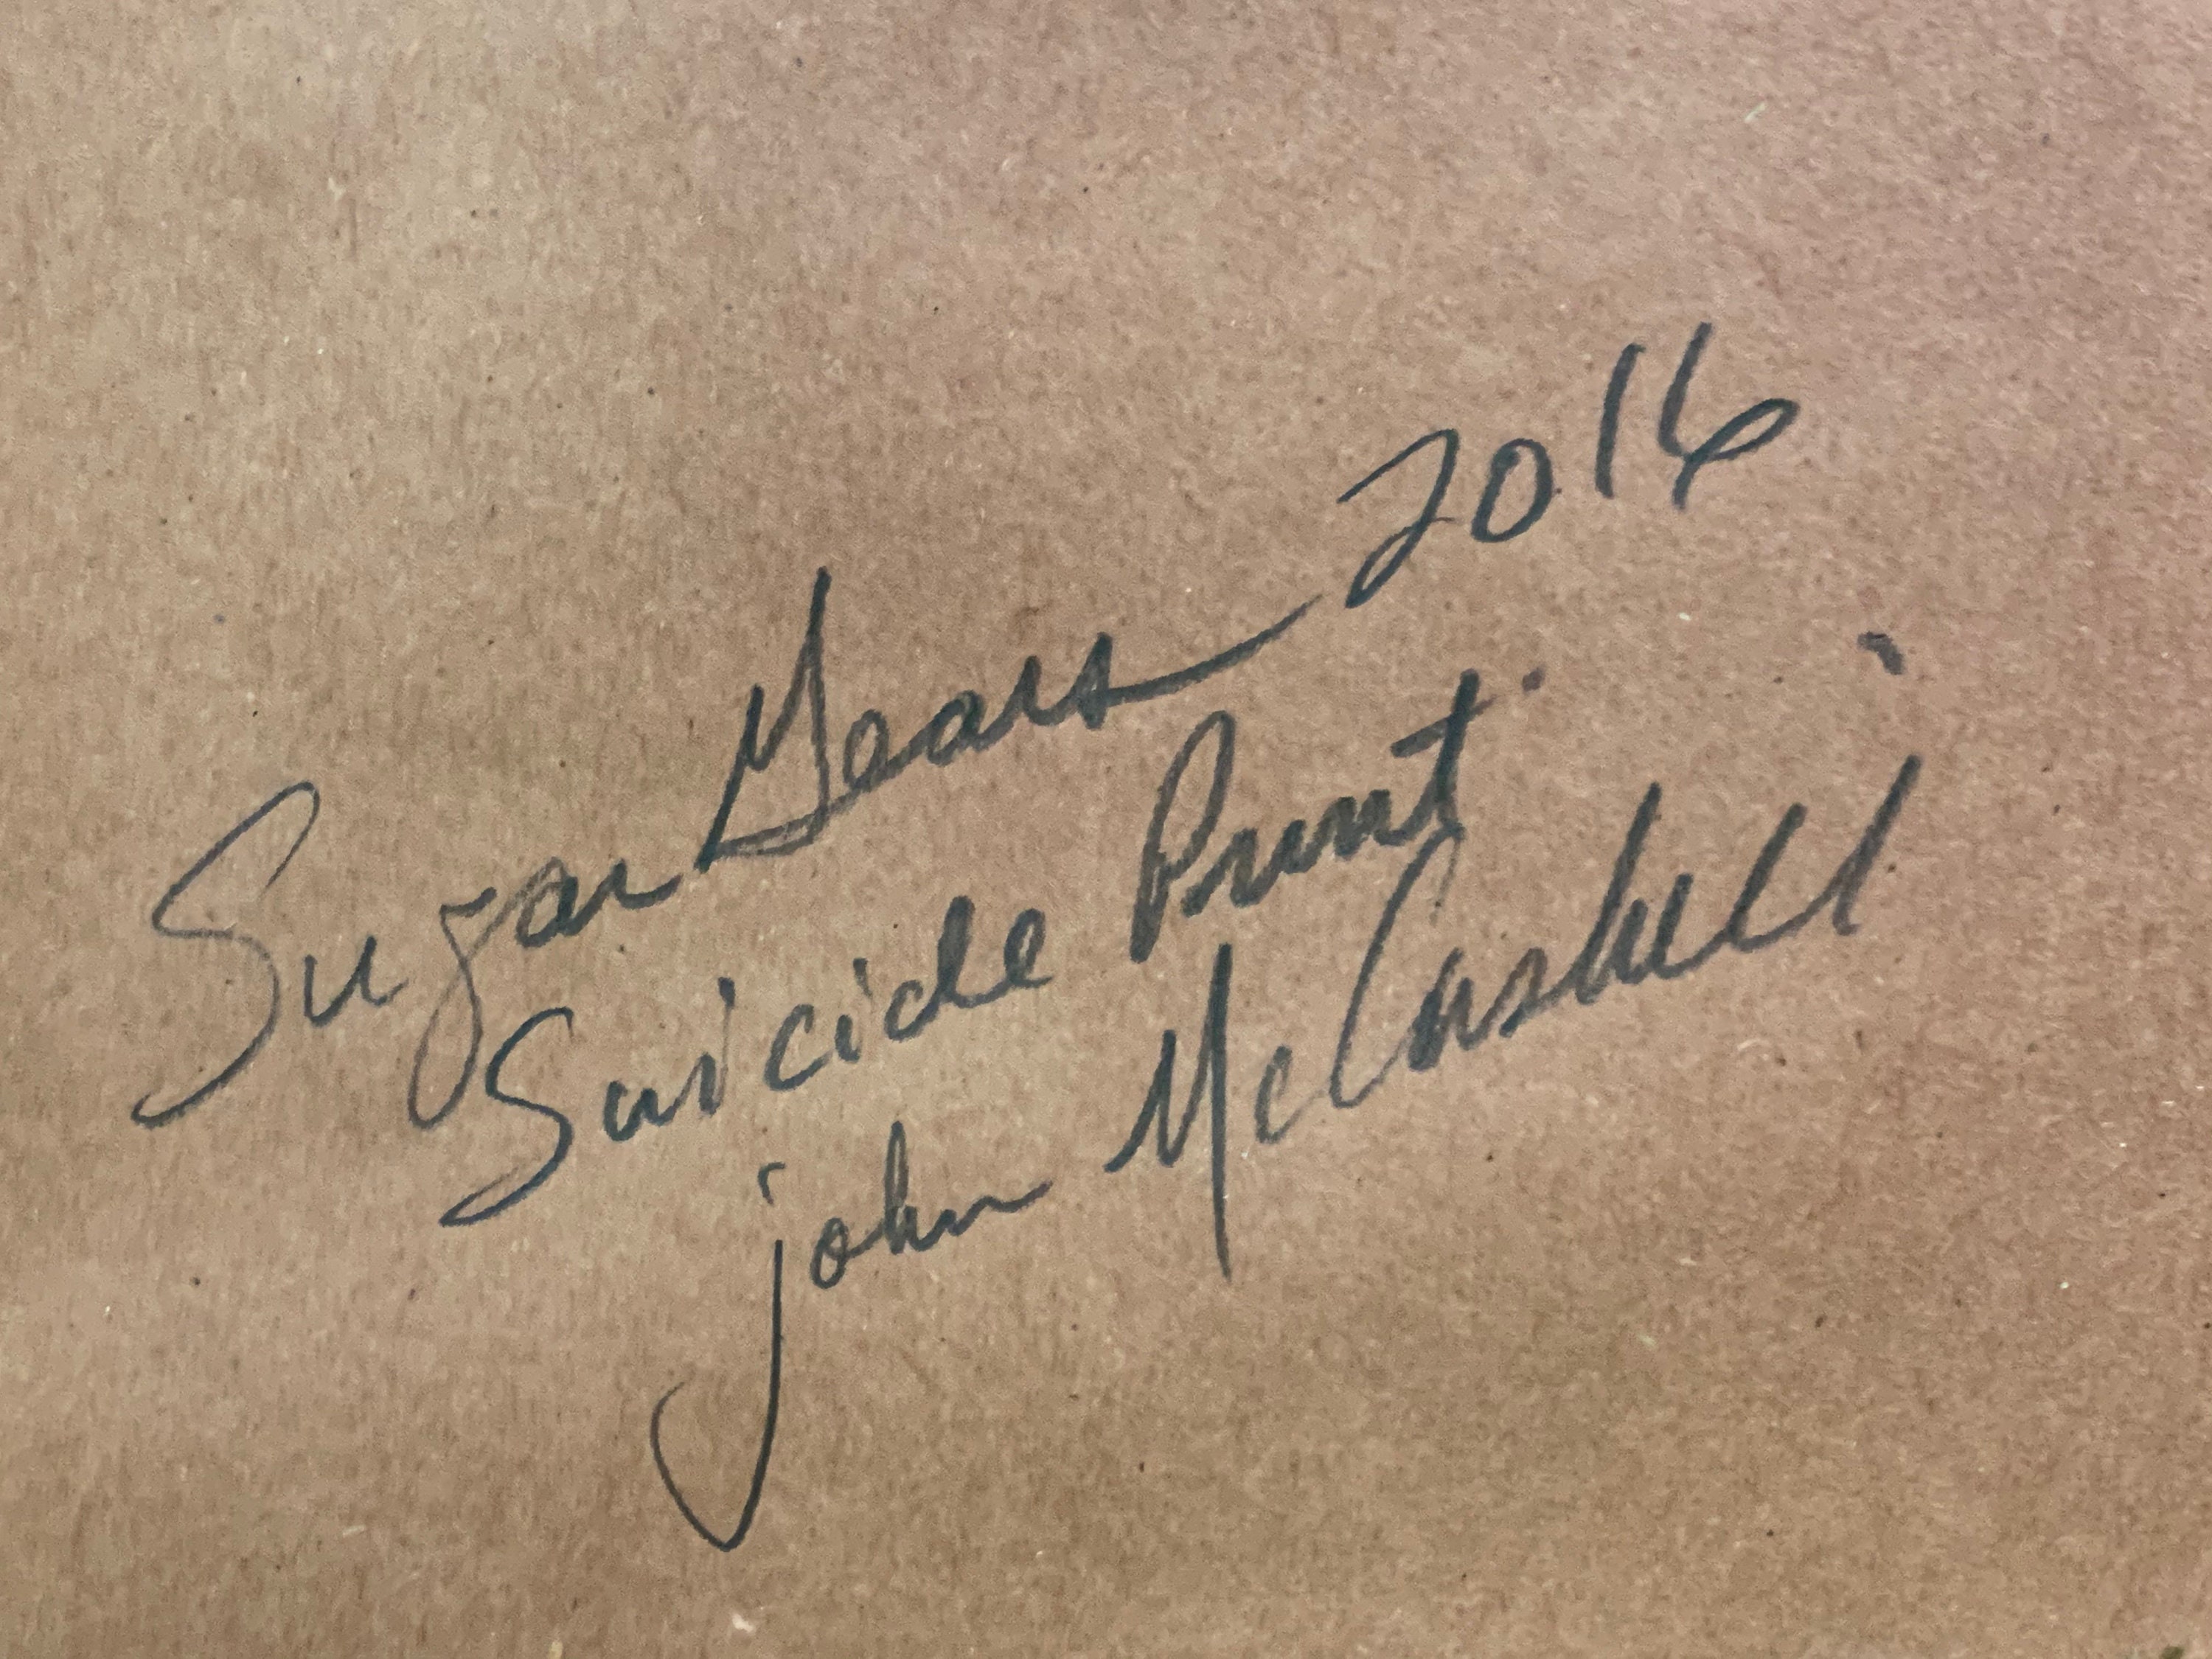 Sugar Gears 2016
Suicide Print.
john McCaskill